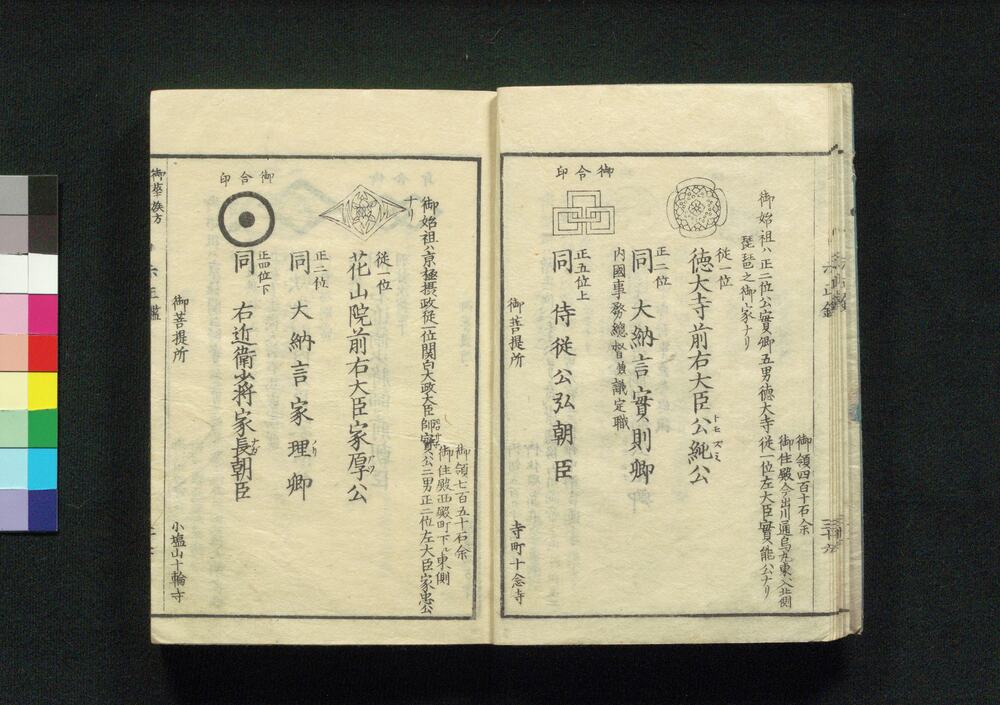 御領四百十石余
御住殿今出川通烏丸東入北側
御始祖ハ正二位公實卿五男徳大寺從一位左大臣實能公ナリ
琵琶之御家ナリ
從一位
徳大寺前右大臣公純公
正二位
同 大納言實則卿
内國事務總督兼議定職
御合印
正五位上
同 侍從公弘朝臣
御菩提所
寺町十念寺
御領七百五十石余
御住殿西殿町下ル東側
御始祖ハ京極摂政從一位関白大政大臣師實公二男正二位左大臣家忠公
ナリ
從一位
花山院前右大臣家厚公
正二位
同 大納言家理卿
御合印
正四位下
同 右近衛少将家長朝臣
御菩提所
小塩山十輪寺
御華族方